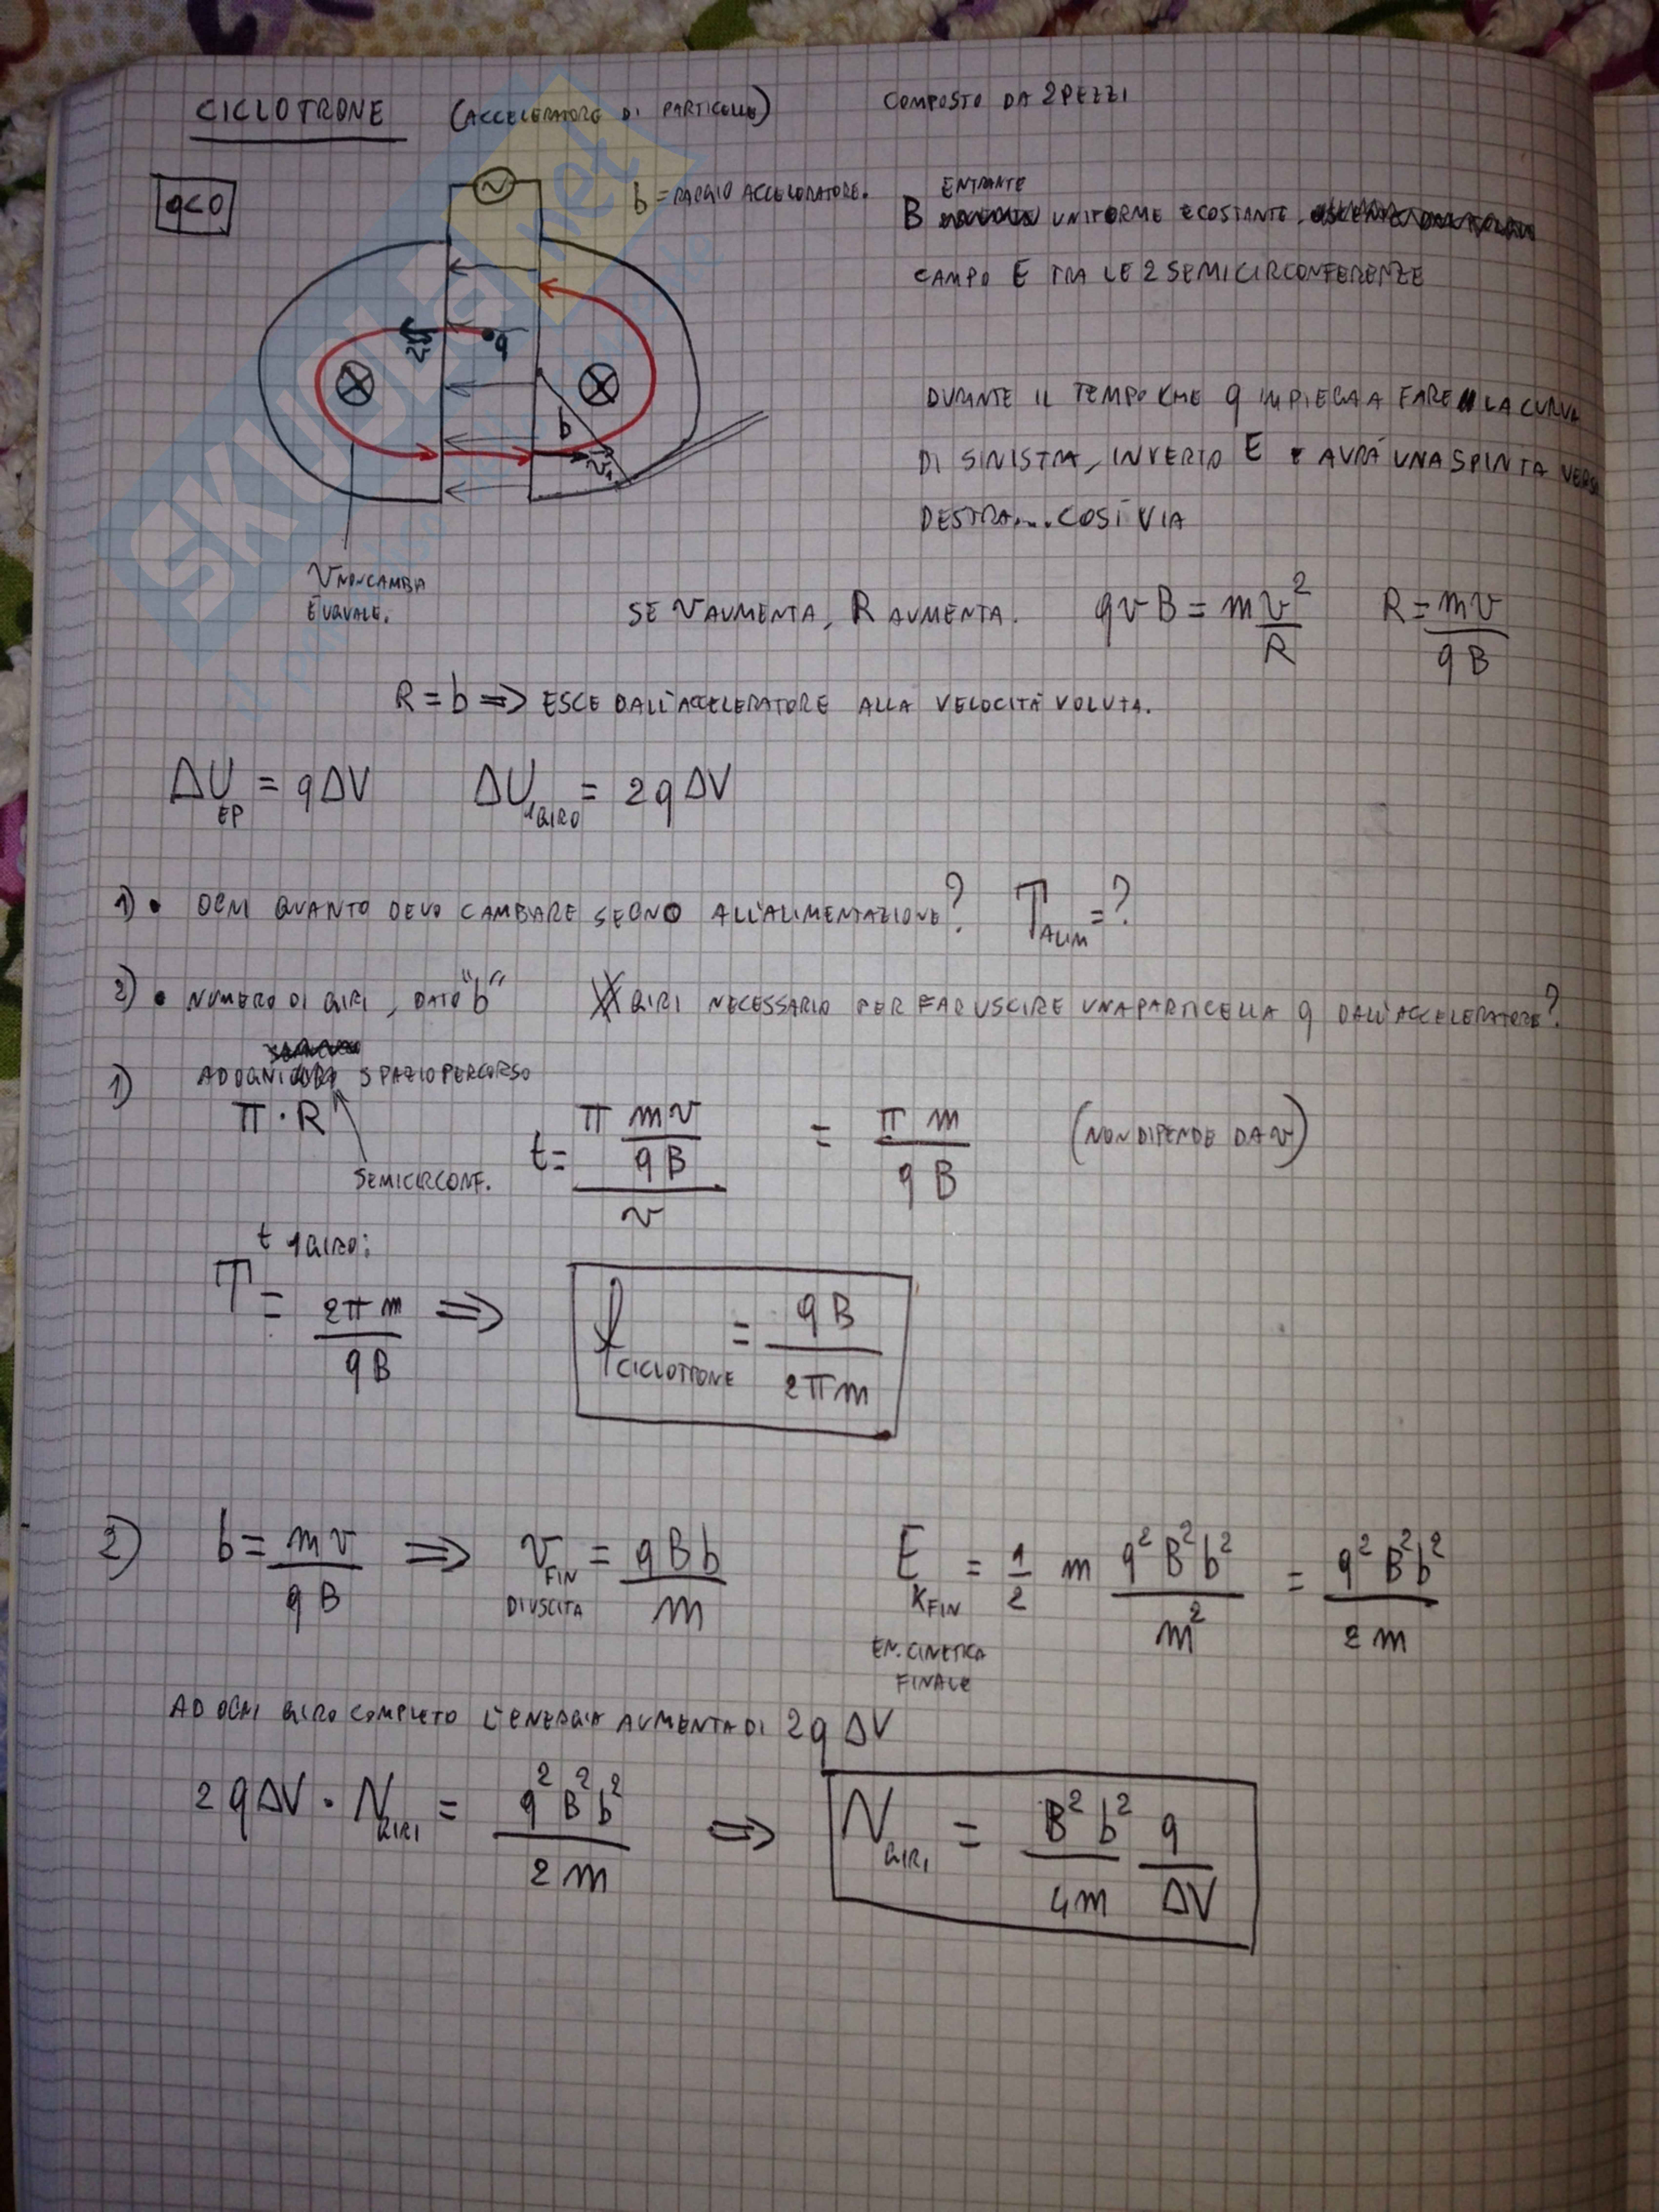 CICLOTRONE (ACCELERATORE DI PARTICELLE) COMPOSTO DA 2 PEZZI
q<0
b = RAGGIO ACCELERATORE.
ENTRANTE
B UNIFORME E COSTANTE.
CAMPO E TRA LE 2 SEMICIRCONFERENZE
v
q
b
v₁
DURANTE IL TEMPO CHE q IMPIEGA A FARE LA CURVA
DI SINISTRA, INVERTO E E AVRÁ UNA SPINTA VERSO
DESTRA... COSÌ VIA
V NON CAMBIA
È UGUALE.
SE V AUMENTA, R AUMENTA. qvB = m v²/R R = mv/qB
R = b => ESCE DALL'ACCELERATORE ALLA VELOCITÀ VOLUTA.
ΔU EP = qΔV ΔU 1GIRO = 2qΔV
1) • OGNI QUANTO DEVO CAMBIARE SEGNO ALL'ALIMENTAZIONE? T ALIM = ?
2) • NUMERO DI GIRI, DATO "b" GIRI NECESSARIO PER FAR USCIRE UNA PARTICELLA q DALL'ACCELERATORE?
1) AD OGNI SPAZIO PERCORSO
π · R
SEMICIRCONF.
t = (π mv/qB)/v = πm/qB (NON DIPENDE DA v)
t 1 GIRO:
T = 2πm/qB => f CICLOTRONE = qB/2πm
2) b = mv/qB => v FIN = qBb/m E K FIN = 1/2 m q²B²b²/m² = q²B²b²/2m
DI USCITA
EN. CINETICA
FINALE
AD OGNI GIRO COMPLETO L'ENERGIA AUMENTA DI 2qΔV
2qΔV · N GIRI = q²B²b²/2m => N GIRI = B²b²/4m q/ΔV
SKUOLA.net